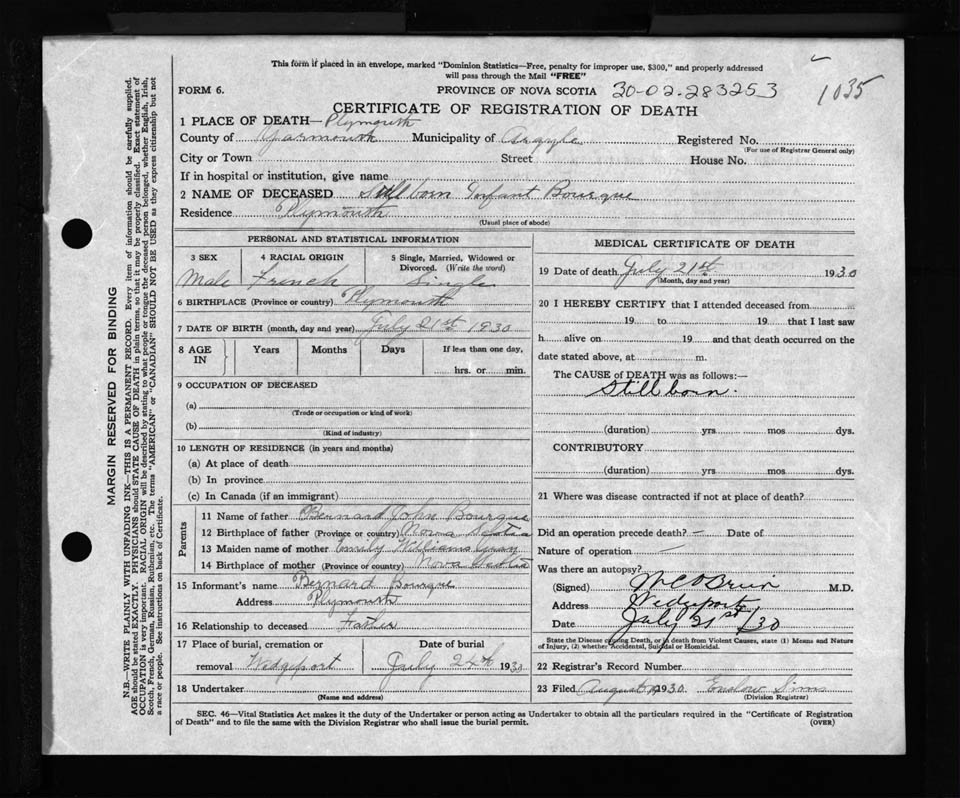 This form if placed in an envelope, marked "Dominion Statistics—Free, penalty for improper use, $300," and properly addressed
will pass through the Mail "FREE"
FORM 6. PROVINCE OF NOVA SCOTIA 30-02-283253 1035
CERTIFICATE OF REGISTRATION OF DEATH
1 PLACE OF DEATH—Plymouth
County of Yarmouth Municipality of Argyle Registered No.
(For use of Registrar General only)
City or Town Street House No.
If in hospital or institution, give name
2 NAME OF DECEASED Still born Infant Bourque
Residence Plymouth
(Usual place of abode)
PERSONAL AND STATISTICAL INFORMATION
3 SEX 4 RACIAL ORIGIN 5 Single, Married, Widowed or
Divorced. (Write the word)
Male French Single
6 BIRTHPLACE (Province or country) Plymouth
7 DATE OF BIRTH (month, day and year) July 21st 1930
8 AGE IN Years Months Days If less than one day,
hrs. or min.
9 OCCUPATION OF DECEASED
(a)
(Trade or occupation or kind of work)
(b)
(Kind of industry)
10 LENGTH OF RESIDENCE (in years and months)
(a) At place of death
(b) In province
(c) In Canada (if an immigrant)
Parents
11 Name of father Bernard John Bourque
12 Birthplace of father (Province or country) Nova Scotia
13 Maiden name of mother Emily Williams
14 Birthplace of mother (Province or country) Nova Scotia
15 Informant's name Bernard Bourque
Address Plymouth
16 Relationship to deceased Father
17 Place of burial, cremation or Date of burial
removal Wedgeport July 24th 1930
18 Undertaker
(Name and address)
MEDICAL CERTIFICATE OF DEATH
19 Date of death July 21st 1930
(Month, day and year)
20 I HEREBY CERTIFY that I attended deceased from
19 to 19 that I last saw
h alive on 19 and that death occurred on the
date stated above, at m.
The CAUSE of DEATH was as follows:—
Still born.
(duration) yrs mos dys.
CONTRIBUTORY
(duration) yrs mos dys.
21 Where was disease contracted if not at place of death?
Did an operation precede death? — Date of
Nature of operation —
Was there an autopsy?
(Signed) O'Brien M.D.
Address Wedgeport
Date July 21st/30
State the Disease causing Death, or in death from Violent Causes, state (1) Means and Nature
of Injury, (2) whether Accidental, Suicidal or Homicidal.
22 Registrar's Record Number
23 Filed August 1930. Enslow Sims
(Division Registrar)
SEC. 46—Vital Statistics Act makes it the duty of the Undertaker or person acting as Undertaker to obtain all the particulars required in the "Certificate of Registration
of Death" and to file the same with the Division Registrar who shall issue the burial permit. (OVER)
MARGIN RESERVED FOR BINDING
N.B.—WRITE PLAINLY WITH UNFADING INK—THIS IS A PERMANENT RECORD. Every item of information should be carefully supplied.
AGE should be stated EXACTLY. PHYSICIANS should STATE CAUSE OF DEATH in plain terms, so that it may be properly classified. Exact statement of
OCCUPATION is very important. RACIAL ORIGIN will be described by stating to what people or tongue the deceased person belonged, whether English, Irish,
Scotch, French, German, Russian, Ruthenian, etc. The terms "AMERICAN" or "CANADIAN" SHOULD NOT BE USED as they express citizenship but not
a race or people. See instructions on back of Certificate.